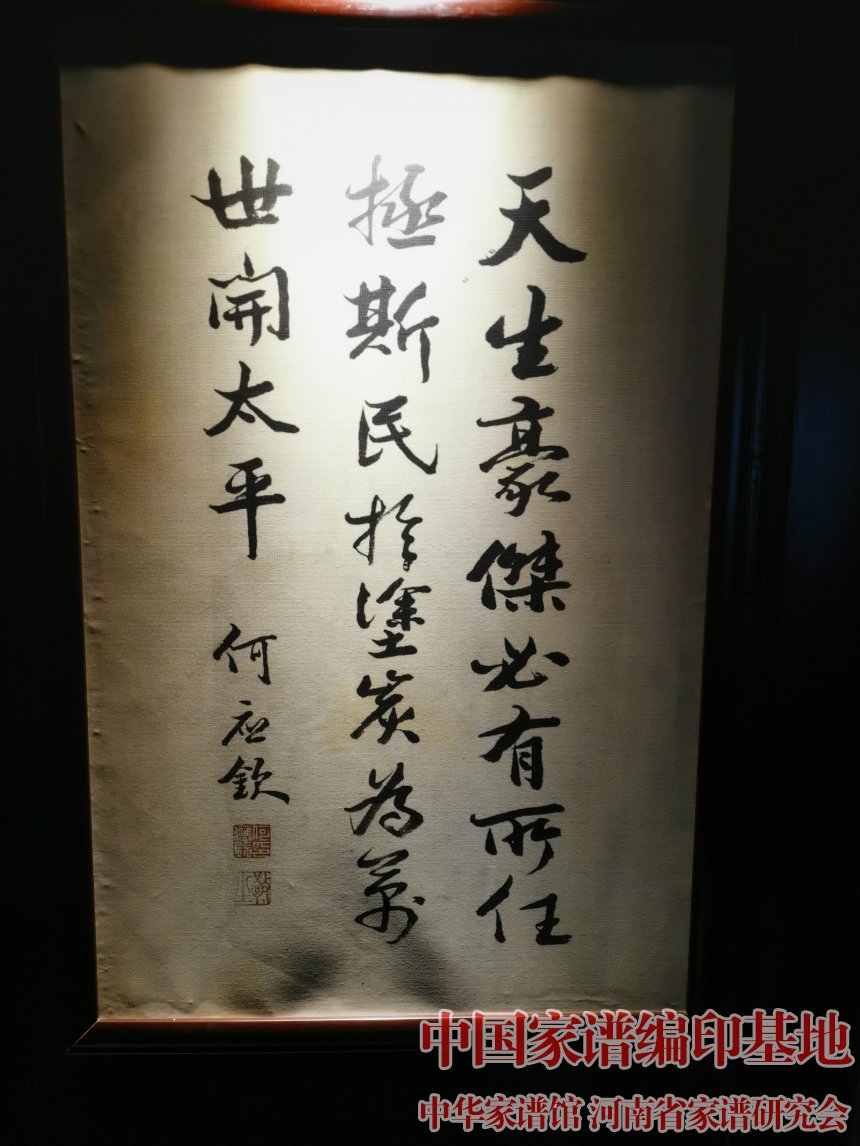 天生豪傑必有所任
拯斯民於塗炭為萬
世開太平
何應欽
中国家谱编印基地
中华家谱馆 河南省家谱研究会